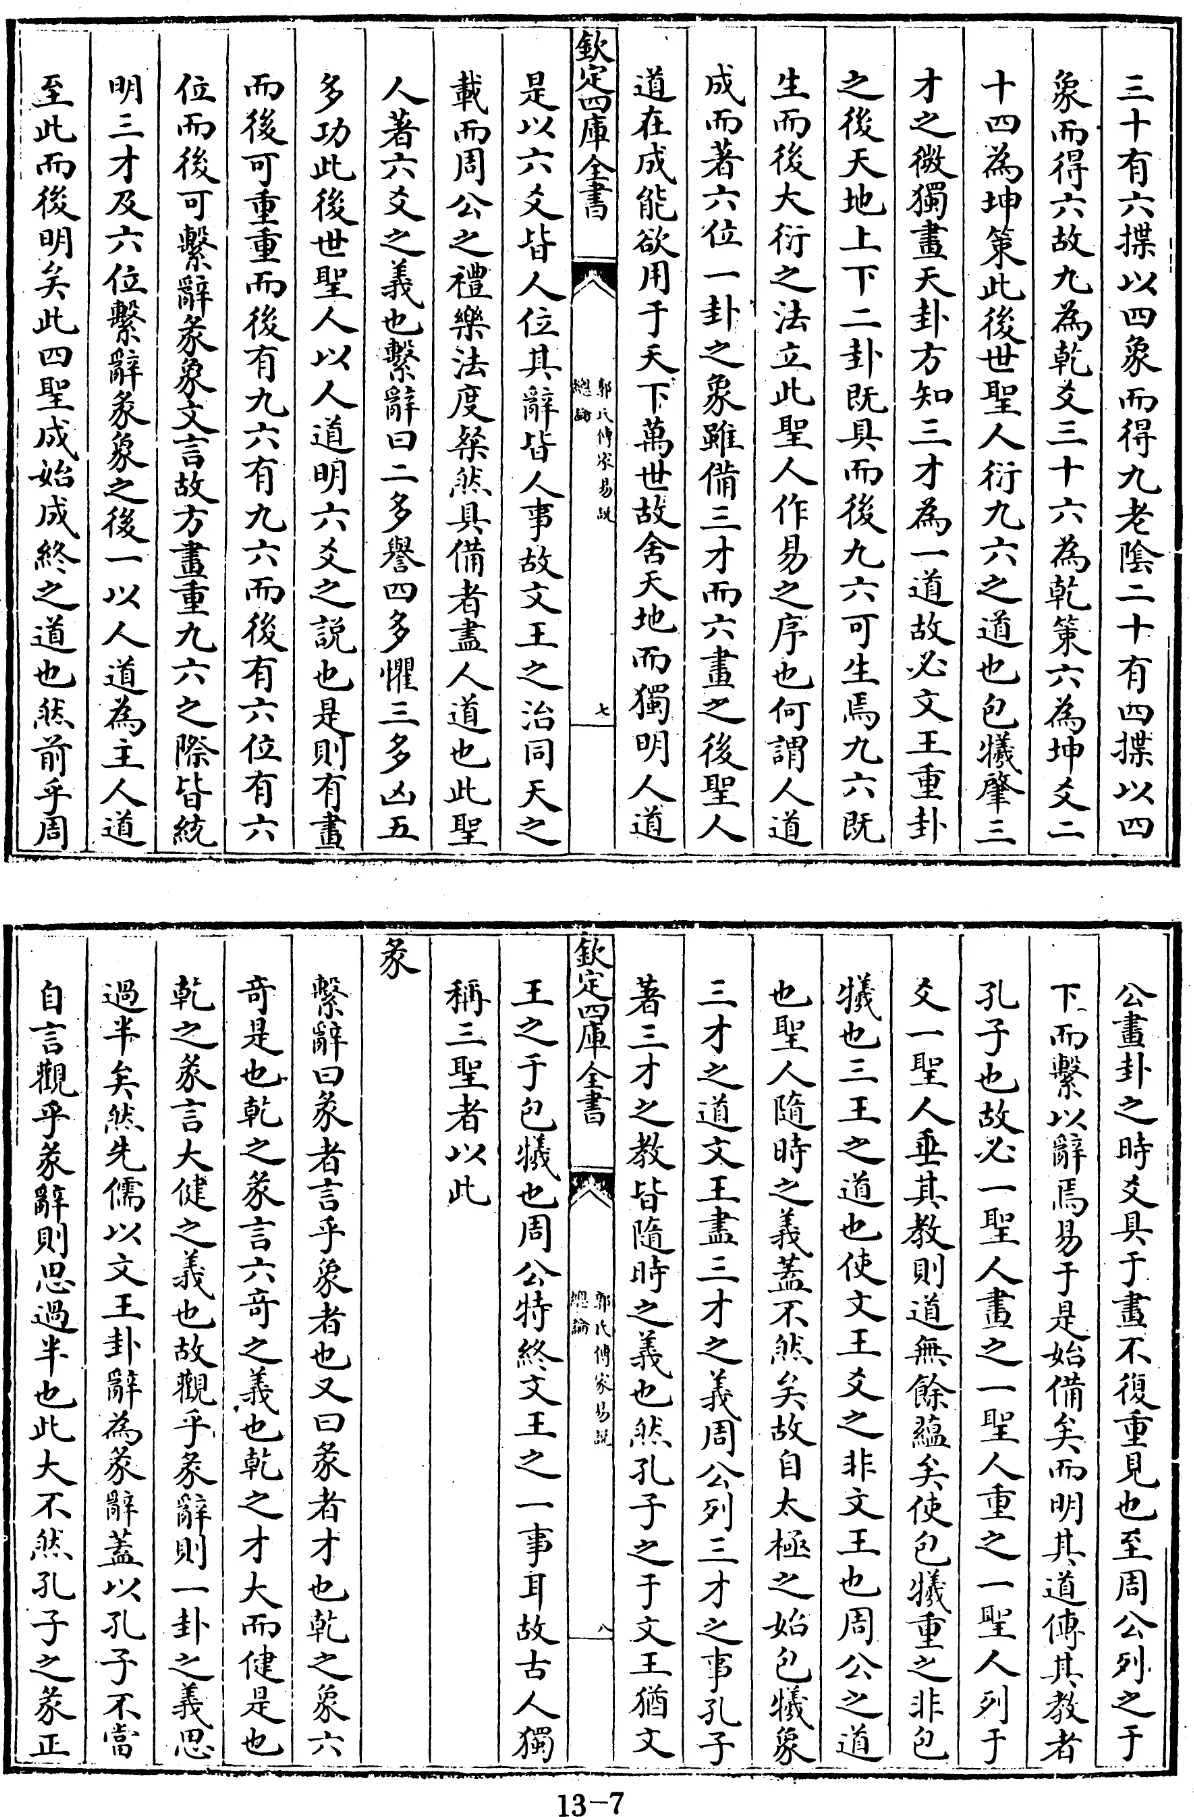 三十有六揲以四象而得九老陰二十有四揲以四
象而得六故九為乾爻三十六為乾策六為坤爻二
十四為坤策此後世聖人衍九六之道也包犧肇三
才之微獨畫天卦方知三才為一道故必文王重卦
之後天地上下二卦既具而後九六可生焉九六既
生而後大衍之法立此聖人作易之序也何謂人道
成而著六位一卦之象雖備三才而六畫之後聖人
道在成能欲用于天下萬世故舍天地而獨明人道
欽定四庫全書
郭氏傳家易說
總論
七
是以六爻皆人位其辭皆人事故文王之治同天之
載而周公之禮樂法度粲然具備者盡人道也此聖
人著六爻之義也繫辭曰二多譽四多懼三多凶五
多功此後世聖人以人道明六爻之說也是則有畫
而後可重重而後有九六有九六而後有六位有六
位而後可繫辭彖象文言故方畫重九六之際皆統
明三才及六位繫辭彖象之後一以人道為主人道
至此而後明矣此四聖成始成終之道也然前乎周
公畫卦之時爻具于畫不復重見也至周公列之于
下而繫以辭焉易于是始備矣而明其道傳其教者
孔子也故必一聖人畫之一聖人重之一聖人列于
爻一聖人垂其教則道無餘蘊矣使包犧重之非包
犧也三王之道也使文王爻之非文王也周公之道
也聖人隨時之義蓋不然矣故自太極之始包犧象
三才之道文王盡三才之義周公列三才之事孔子
著三才之教皆隨時之義也然孔子之于文王猶文
欽定四庫全書
郭氏傳家易說
總論
八
王之于包犧也周公特終文王之一事耳故古人獨
稱三聖者以此
彖
繫辭曰彖者言乎象者也又曰彖者才也乾之象六
奇是也乾之彖言六奇之義也乾之才大而健是也
乾之彖言大健之義也故觀乎彖辭則一卦之義思
過半矣然先儒以文王卦辭為彖辭蓋以孔子不當
自言觀乎彖辭則思過半也此大不然孔子之彖正
13-7